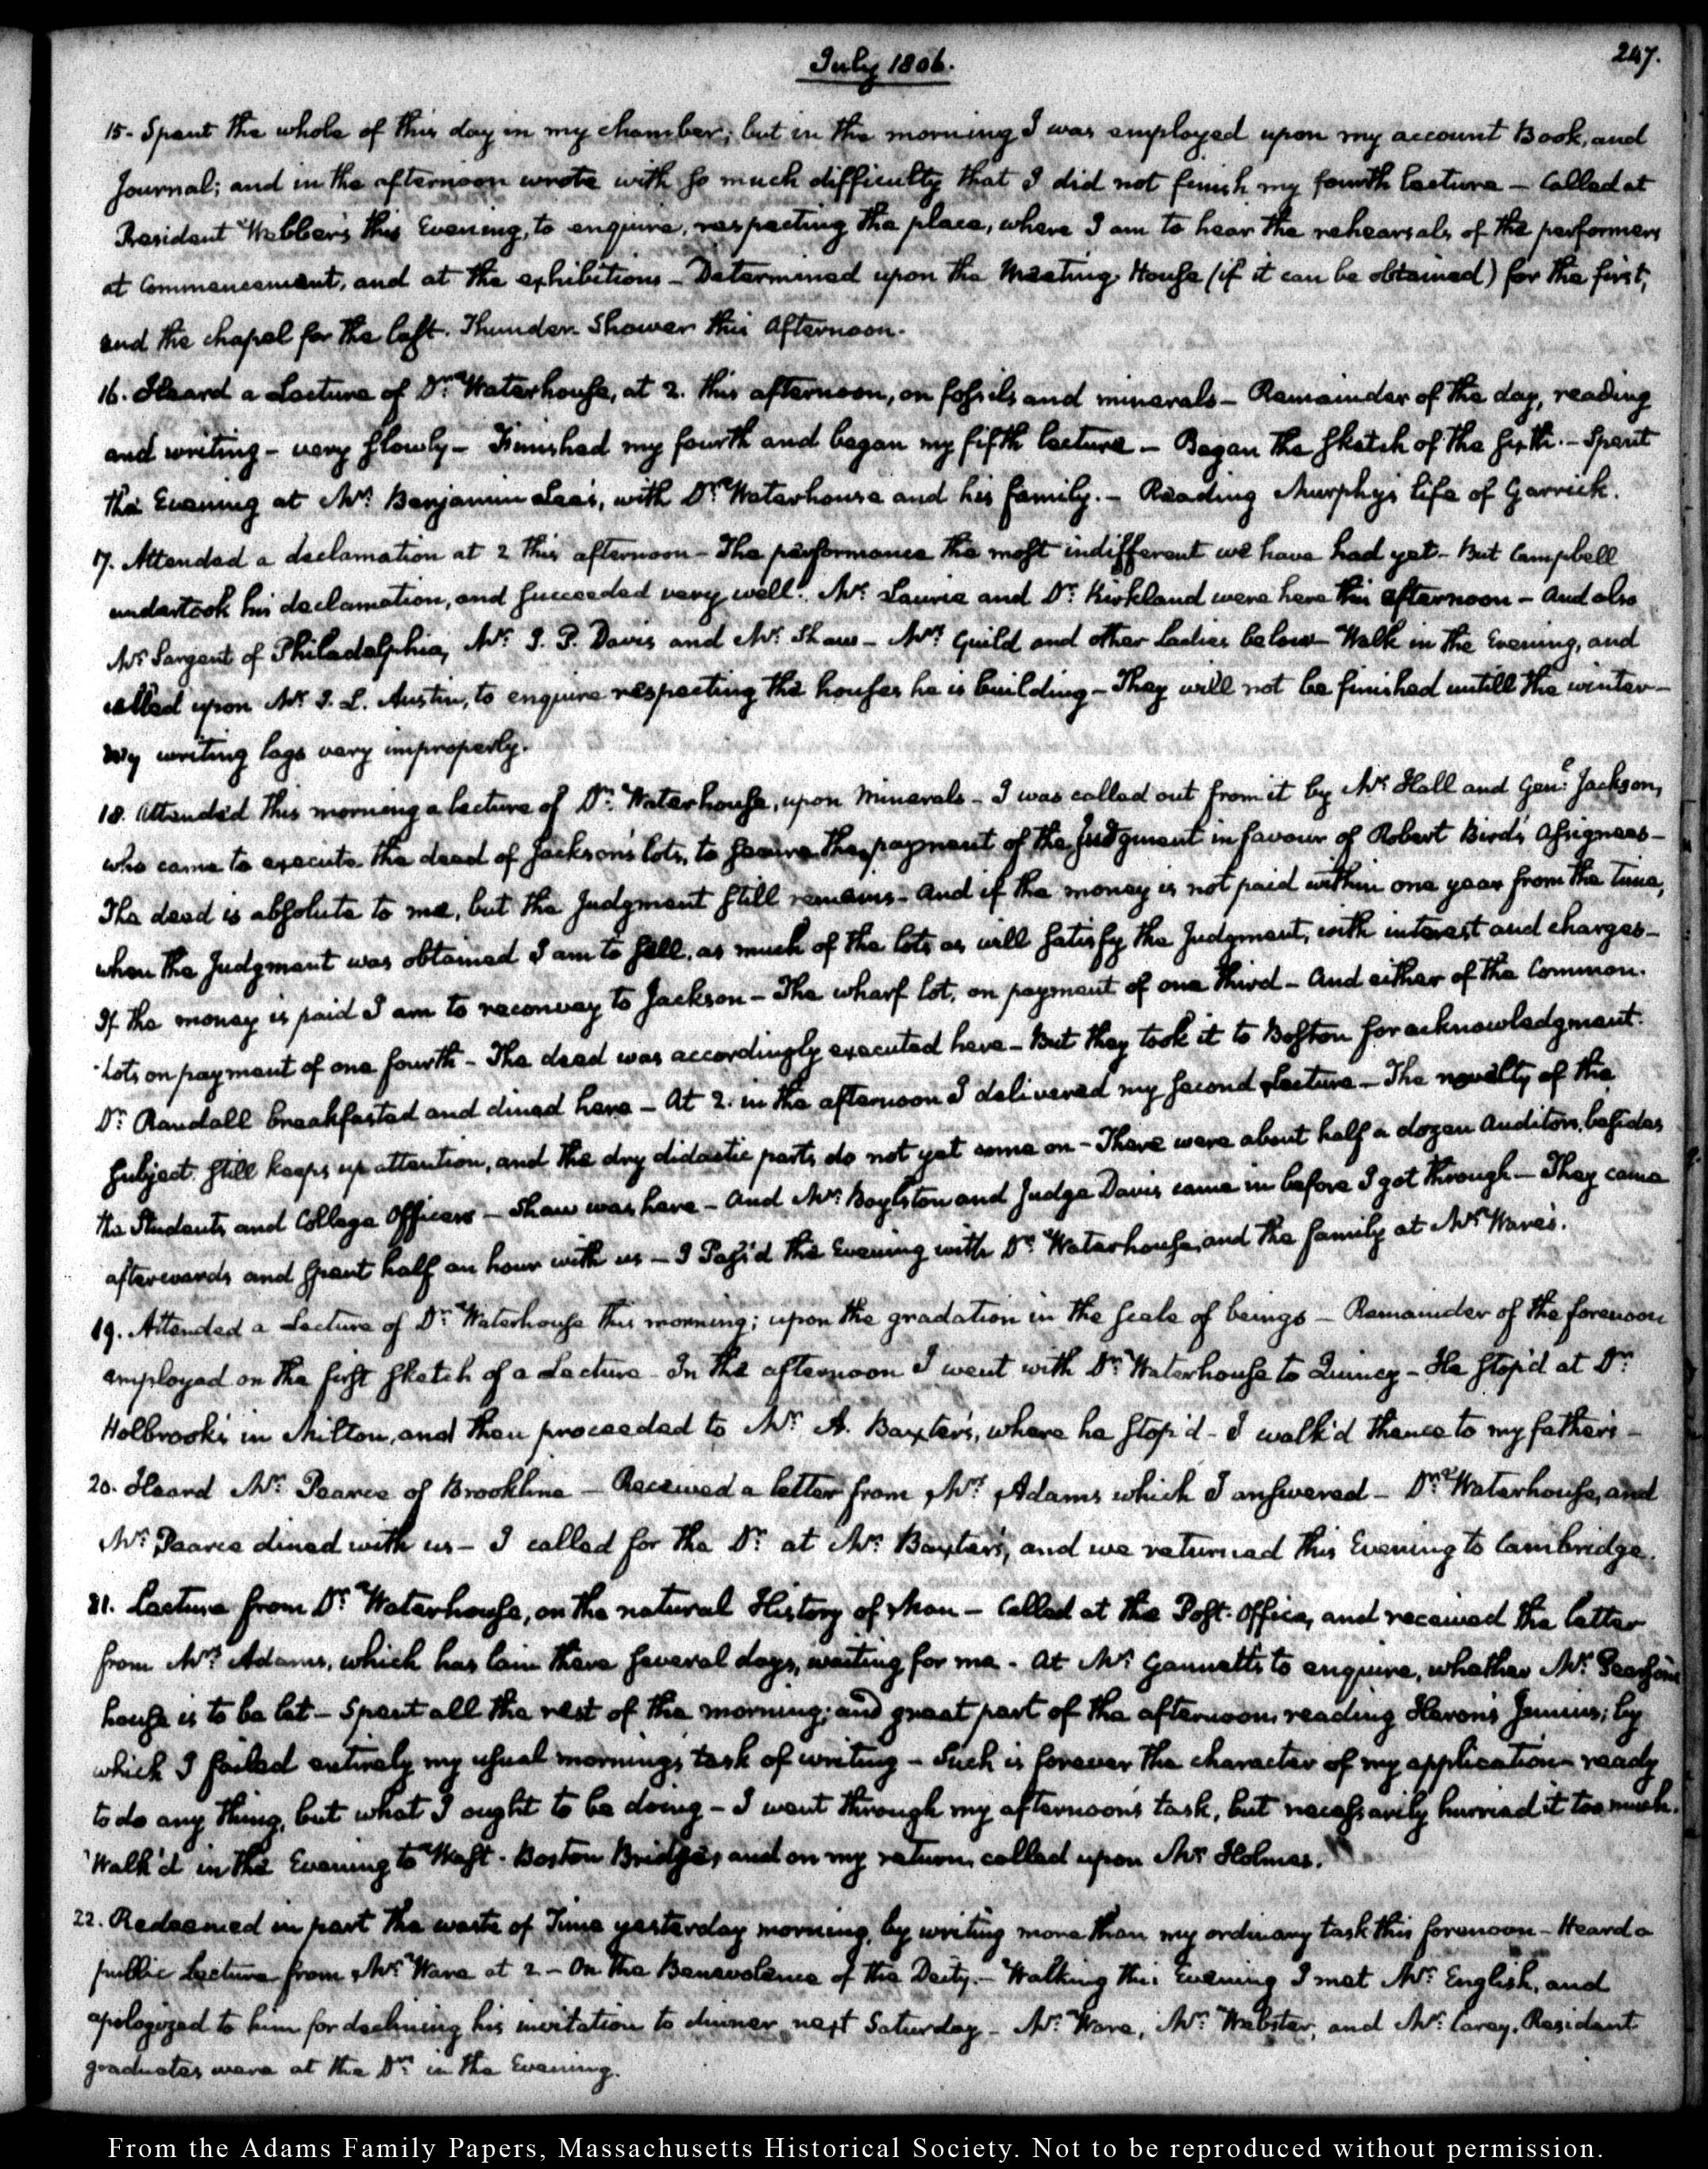 July 1806.
247.
15. Spent the whole of this day in my chamber; but in the morning I was employed upon my account Book, and
Journal; and in the afternoon wrote with so much difficulty that I did not finish my fourth lecture — Called at
President Webber's this Evening, to enquire, respecting the place, where I am to hear the rehearsals of the performers
at Commencement, and at the exhibitions — Determined upon the Meeting-House (if it can be obtained) for the first;
and the chapel for the last. Thunder-Shower this Afternoon.
16. Heard a Lecture of Dr. Waterhouse, at 2. this afternoon, on fossils and minerals — Remainder of the day, reading
and writing — very slowly — Finished my fourth and began my fifth lecture — Began the sketch of the sixth. — Spent
the Evening at Mr. Benjamin Lee's, with Dr. Waterhouse and his family. — Reading Murphy's life of Garrick.
17. Attended a declamation at 2 this afternoon — The performance the most indifferent we have had yet — But Campbell
undertook his declamation, and succeeded very well. Mr. Laurie and Dr. Kirkland were here this afternoon — And also
Mr. Sargent of Philadelphia, Mr. I. P. Davis and Mr. Shaw — Mrs. Guild and other Ladies below — Walk in the Evening, and
called upon Mr. I. L. Austin, to enquire respecting the houses he is building — They will not be finished untill the winter —
My writing lags very improperly.
18. Attended this morning a lecture of Dr. Waterhouse, upon Minerals — I was called out from it by Mr. Hall and Genl. Jackson,
who came to execute the deed of Jackson's lots, to secure the payment of the Judgment in favour of Robert Bird's Assignees —
The deed is absolute to me, but the Judgment still remains — And if the money is not paid within one year from the time,
when the Judgment was obtained I am to sell, as much of the lots as will satisfy the Judgment, with interest and charges —
If the money is paid I am to reconvey to Jackson — The wharf lot, on payment of one third — And either of the Common-
Lots on payment of one fourth — The deed was accordingly executed here — But they took it to Boston for acknowledgment.
Dr. Randall breakfasted and dined here — At 2. in the afternoon I delivered my second Lecture — The novelty of the
subject still keeps up attention, and the dry didactic parts do not yet come on — There were about half a dozen Auditors, besides
the Students and College Officers — Shaw was here — And Mr. Boylston and Judge Davis came in before I got through — They came
afterwards and spent half an hour with us — I Pass'd the Evening with Dr. Waterhouse, and the family at Mr. Ware's.
19. Attended a Lecture of Dr. Waterhouse this morning; upon the gradation in the scale of beings — Remainder of the forenoon
employed on the first sketch of a Lecture — In the afternoon I went with Dr. Waterhouse to Quincy — He stop'd at Dr.
Holbrook's in Milton, and then proceeded to Mr. A. Baxter's, where he stop'd — I walk'd thence to my father's —
20. Heard Mr. Pearce of Brookline — Received a letter from Mrs. Adams which I answered — Dr. Waterhouse, and
Mr. Pearce dined with us — I called for the Dr. at Mr. Baxter's, and we returned this Evening to Cambridge.
21. Lecture from Dr. Waterhouse, on the natural History of Man — Called at the Post-Office, and received the letter
from Mrs. Adams, which has lain there several days, waiting for me. At Mr. Gannett's to enquire, whether Mr. Pearson's
house is to be let — Spent all the rest of the morning; and great part of the afternoon, reading Heron's Junius; by
which I failed entirely my usual morning's task of writing — Such is forever the character of my application — ready
to do any thing, but what I ought to be doing — I went through my afternoon's task, but necessarily hurried it too much.
Walk'd in the Evening to West-Boston Bridge, and on my return, called upon Mr. Holmes.
22. Redeemed in part the waste of Time yesterday morning, by writing more than my ordinary task this forenoon — Heard a
public Lecture from Mr. Ware at 2 — On the Benevolence of the Deity. — Walking this Evening I met Mr. English, and
apologized to him for declining his invitation to dinner next Saturday — Mr. Ware, Mr. Webster, and Mr. Carey, Resident
graduates were at the Drs. in the Evening.
From the Adams Family Papers, Massachusetts Historical Society. Not to be reproduced without permission.